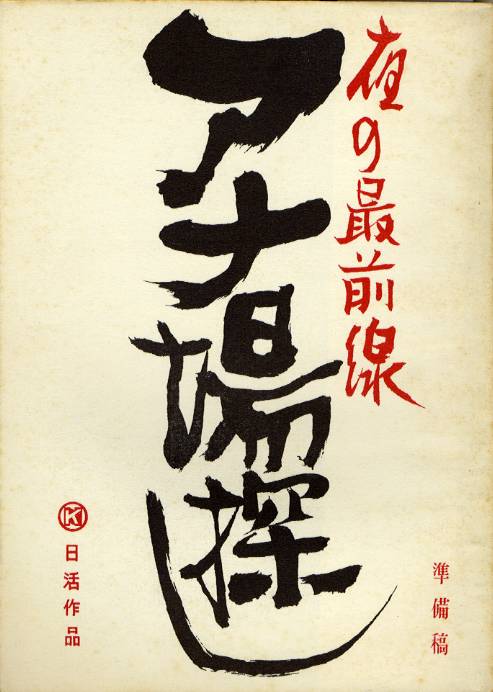 夜の最前線
アナ場探し
準備稿
K
日活作品